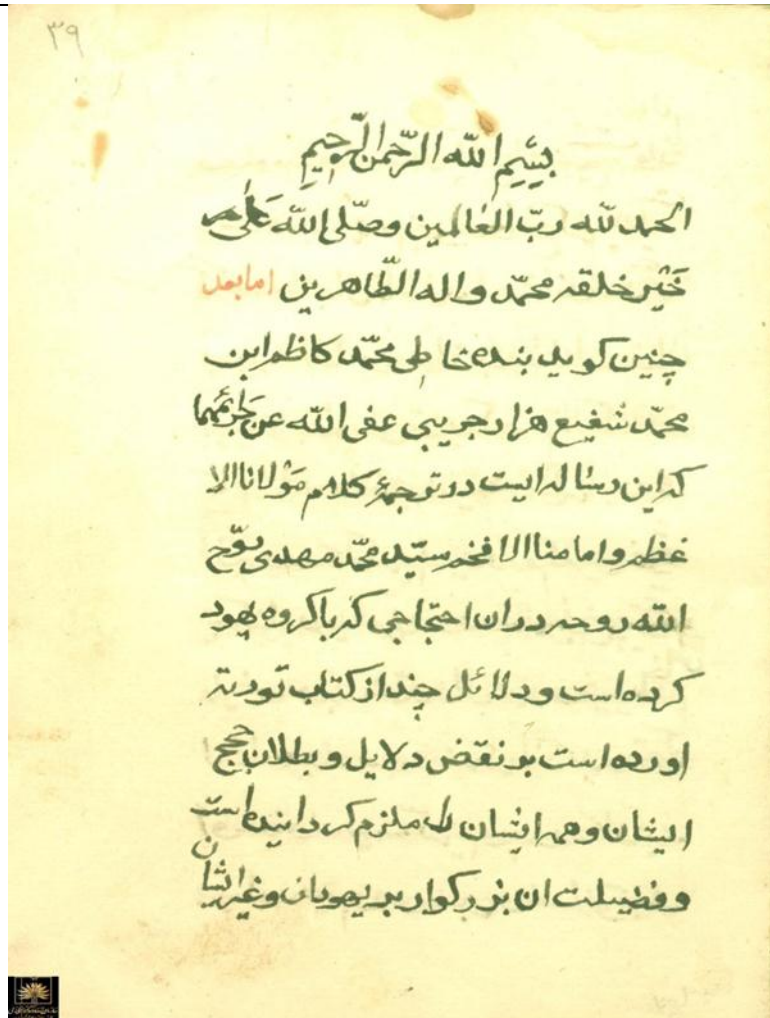 ۳۹
بسم الله الرّحمن الرّحیم
الحمد للّه ربّ العالمین وصلّی اللّه عَلی
خَیر خلقه محمّد واله الطّاهرین اما بعد
چنین کوید بنده خاطی محمّد کاظم ابن
محمّد شفیع هزارجریبی عفی اللّه عن جرائمهما
که این رساله ایست در ترجمهٔ کلام مَوْلانا الا
عظم و امامنا الافخم سیّد محمّد مهدی روّح
اللّه روحه در ان احتجاجی که با کروه یهود
کرده است و دلائل چند از کتاب توریة
اورده است بر نقض دلایل و بطلان حجج
ایشان و همه ایشان را ملزم کردانیده است
و فضیلت ان بزرکوار بر یهودان و غیر ایشان